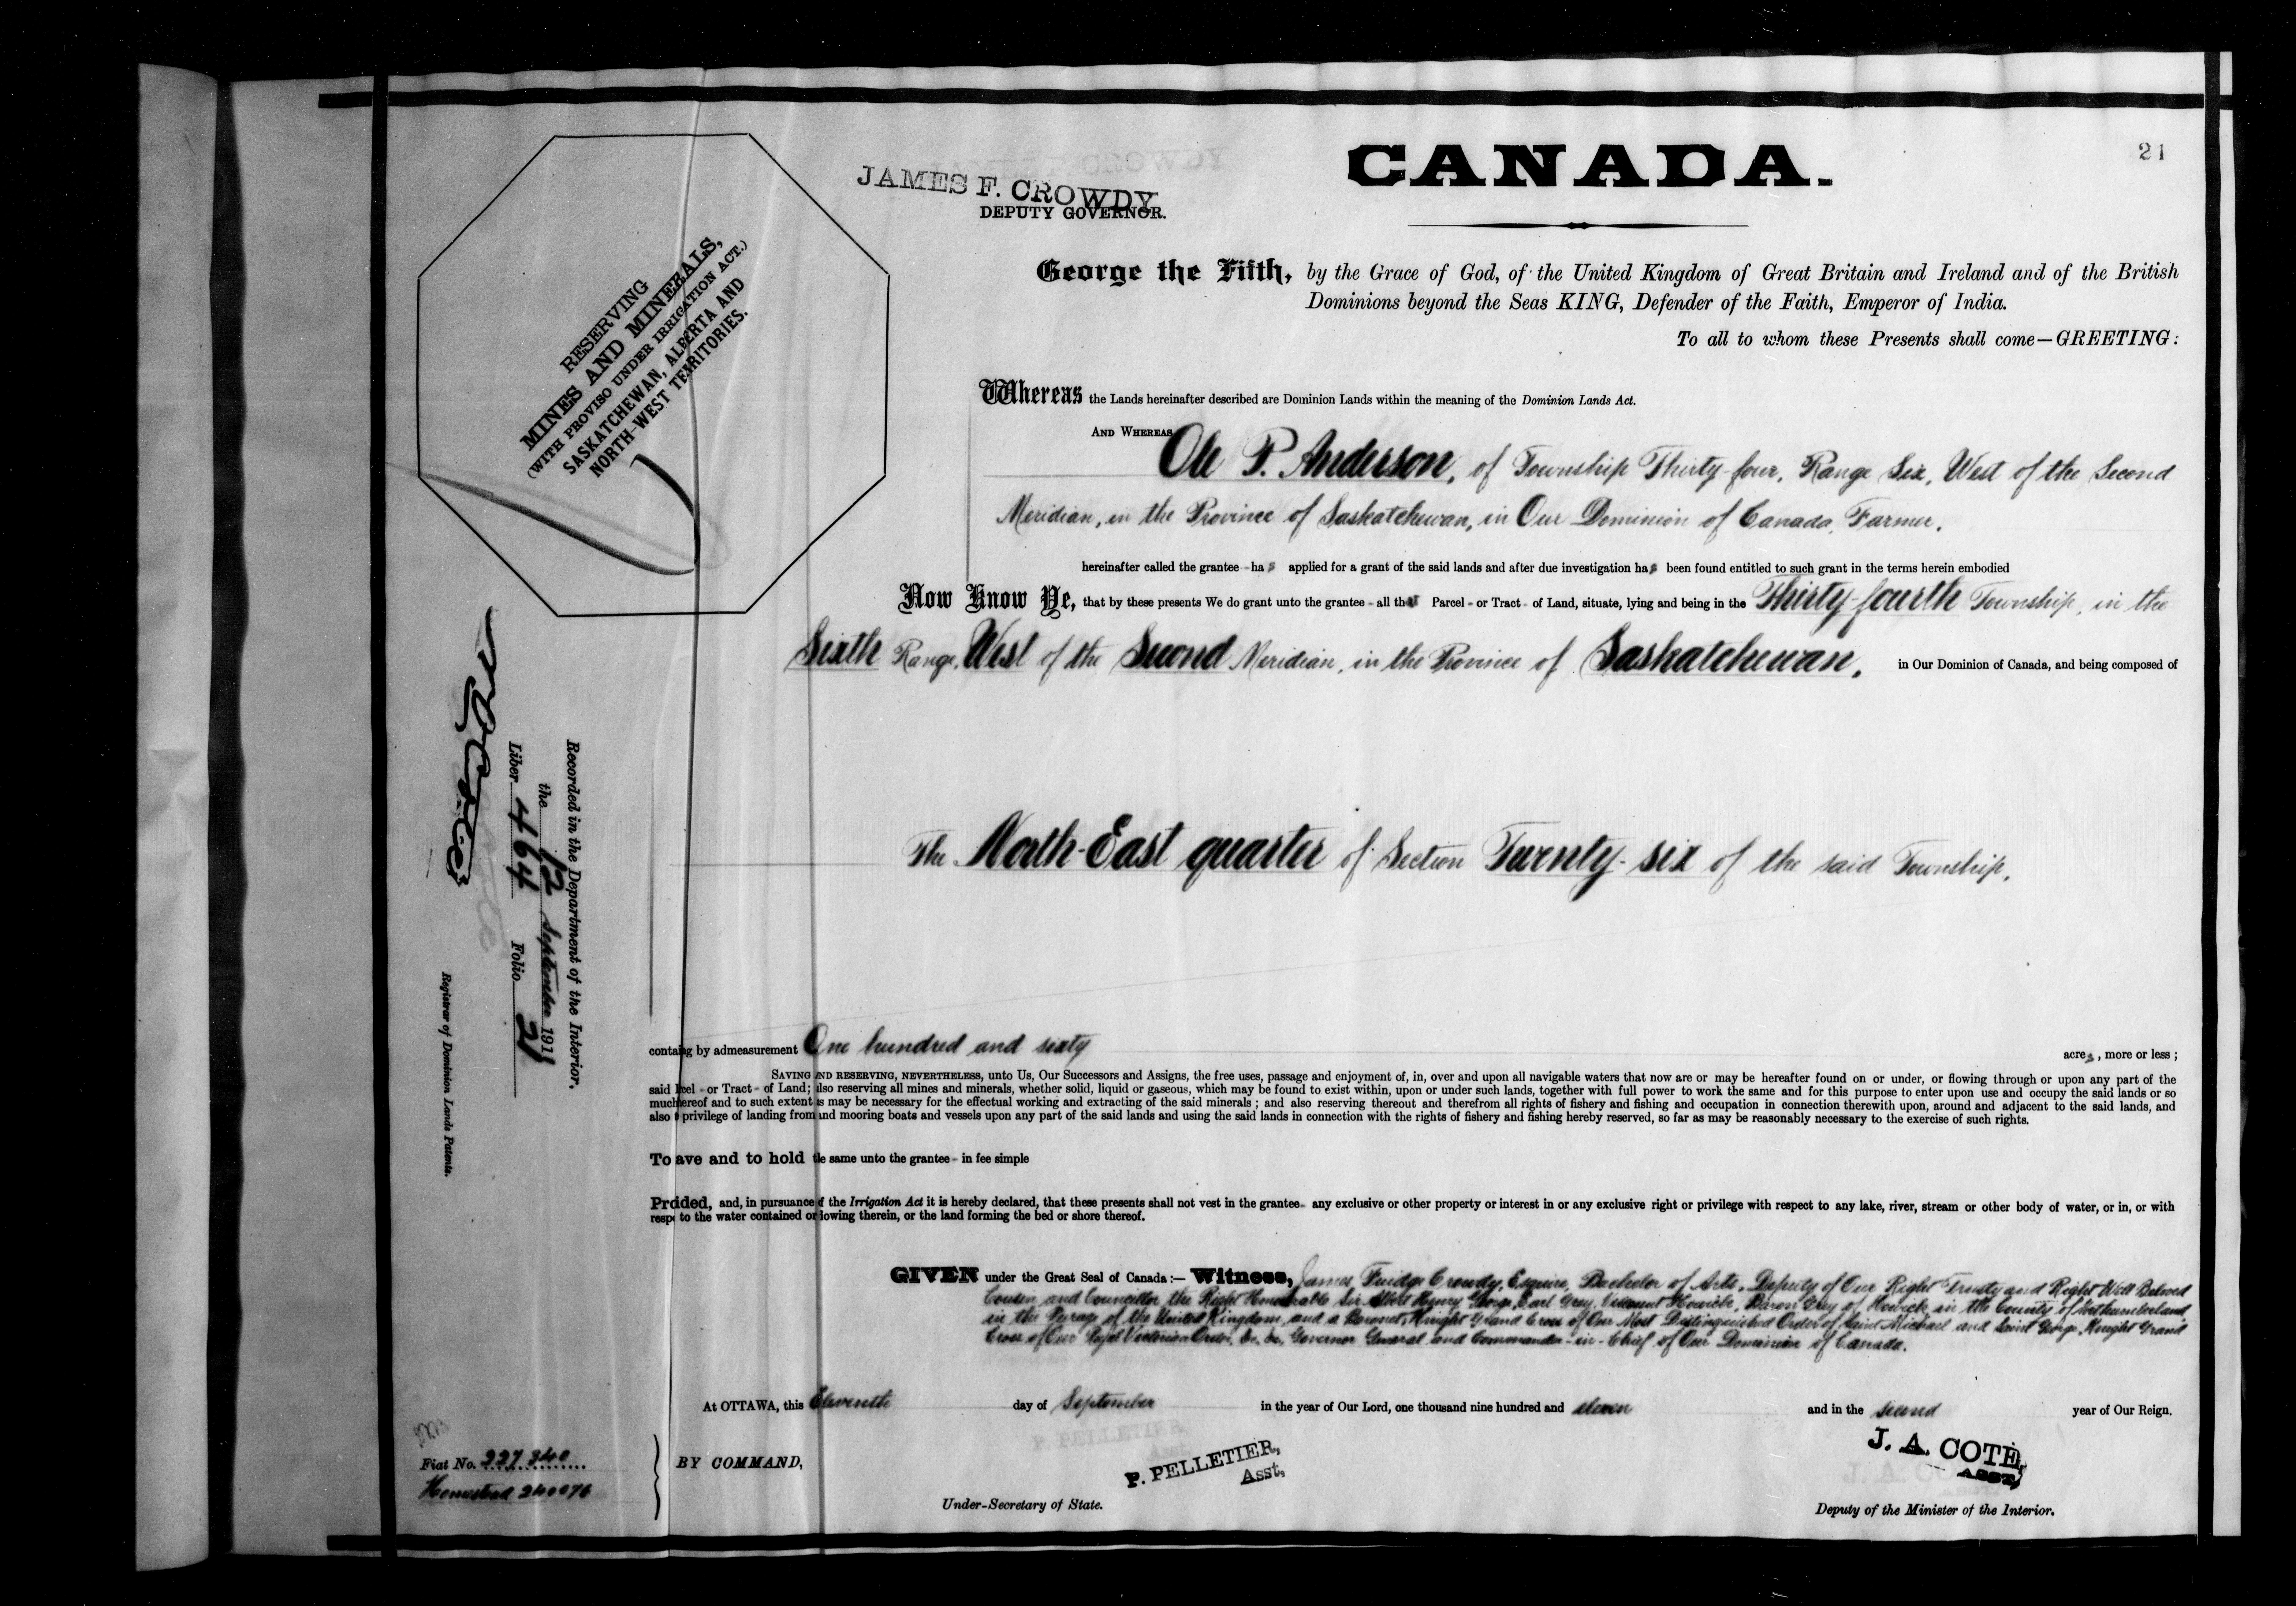 21
CANADA.
JAMES F. CROWDY
DEPUTY GOVERNOR.
RESERVING
MINES AND MINERALS,
(WITH PROVISO UNDER IRRIGATION ACT.)
SASKATCHEWAN, ALBERTA AND
NORTH-WEST TERRITORIES.
George the Fifth, by the Grace of God, of the United Kingdom of Great Britain and Ireland and of the British
Dominions beyond the Seas KING, Defender of the Faith, Emperor of India.
To all to whom these Presents shall come—GREETING:
Whereas the Lands hereinafter described are Dominion Lands within the meaning of the Dominion Lands Act.
AND WHEREAS Ole P. Anderson, of Township Thirty-four, Range Six, West of the Second
Meridian, in the Province of Saskatchewan, in Our Dominion of Canada, Farmer.
hereinafter called the grantee - has applied for a grant of the said lands and after due investigation has been found entitled to such grant in the terms herein embodied
Now Know Ye, that by these presents We do grant unto the grantee - all that Parcel - or Tract - of Land, situate, lying and being in the Thirty-fourth Township, in the
Sixth Range, West of the Second Meridian, in the Province of Saskatchewan, in Our Dominion of Canada, and being composed of
The North-East quarter of Section Twenty-six of the said Township,
Recorded in the Department of the Interior.
the 12 September 1911
Liber 464 Folio 21
Registrar of Dominion Lands Patents.
containg by admeasurement One hundred and sixty acres, more or less;
SAVING AND RESERVING, NEVERTHELESS, unto Us, Our Successors and Assigns, the free uses, passage and enjoyment of, in, over and upon all navigable waters that now are or may be hereafter found on or under, or flowing through or upon any part of the
said rcel - or Tract - of Land; also reserving all mines and minerals, whether solid, liquid or gaseous, which may be found to exist within, upon or under such lands, together with full power to work the same and for this purpose to enter upon use and occupy the said lands or so
much hereof and to such extent as may be necessary for the effectual working and extracting of the said minerals; and also reserving thereout and therefrom all rights of fishery and fishing and occupation in connection therewith upon, around and adjacent to the said lands, and
also privilege of landing from and mooring boats and vessels upon any part of the said lands and using the said lands in connection with the rights of fishery and fishing hereby reserved, so far as may be reasonably necessary to the exercise of such rights.
To ave and to hold the same unto the grantee - in fee simple
Prdided, and, in pursuance of the Irrigation Act it is hereby declared, that these presents shall not vest in the grantee - any exclusive or other property or interest in or any exclusive right or privilege with respect to any lake, river, stream or other body of water, or in, or with
resp to the water contained or lowing therein, or the land forming the bed or shore thereof.
GIVEN under the Great Seal of Canada:— Witness, James Fuidge Crowdy, Esquire, Bachelor of Arts, Deputy of Our Right Trusty and Right Well Beloved
Cousin and Councillor the Right Honourable Sir Albert Henry George, Earl Grey, Viscount Howick, Baron Grey of Howick, in the County of Northumberland
in the Peerage of the United Kingdom, and a Baronet, Knight Grand Cross of Our Most Distinguished Order of Saint Michael and Saint George, Knight Grand
Cross of Our Royal Victorian Order, &c. &c., Governor General and Commander-in-Chief of Our Dominion of Canada.
At OTTAWA, this Eleventh day of September in the year of Our Lord, one thousand nine hundred and eleven and in the second year of Our Reign.
Fiat No. 227340
Homestead 240076
BY COMMAND,
P. PELLETIER,
Asst,
Under-Secretary of State.
J. A. COTE,
ASST,
Deputy of the Minister of the Interior.